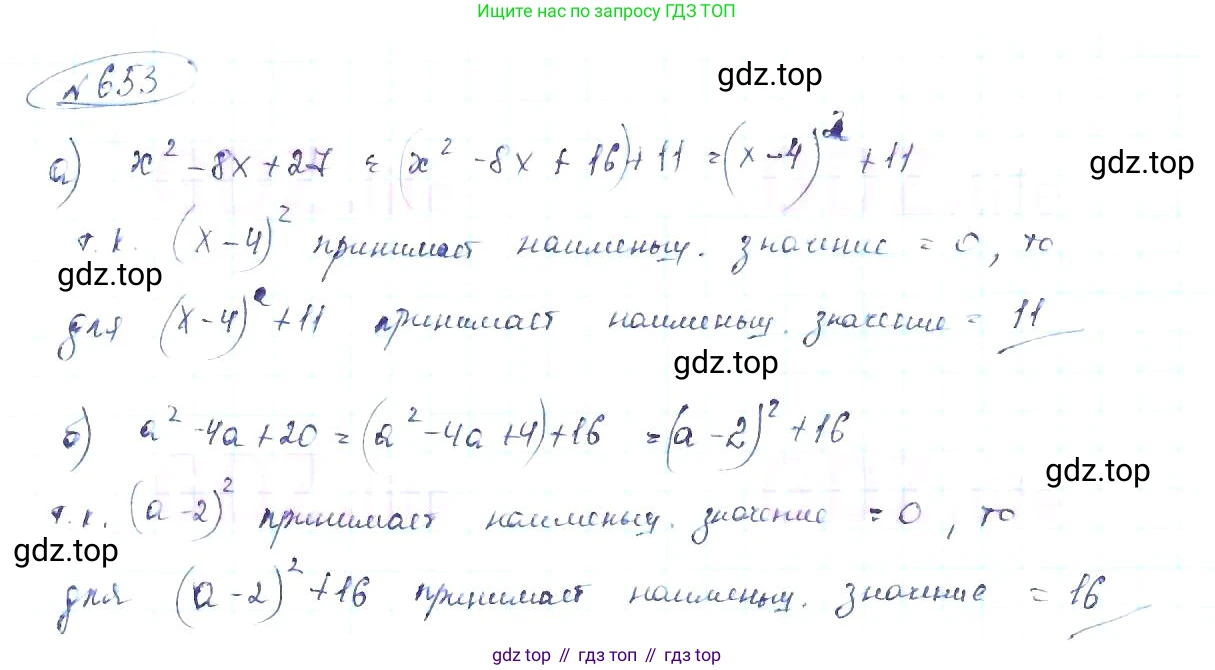 Ищите нас по запросу ГДЗ ТОП
№653
gdz.top
а) x² - 8x + 27 = (x² - 8x + 16) + 11 = (x - 4)² + 11
gdz.top
т.к. (x - 4)² принимает наименьш. значение = 0, то
gdz.top
для (x - 4)² + 11 принимает наименьш. значение = 11
gdz.top
б) a² - 4a + 20 = (a² - 4a + 4) + 16 = (a - 2)² + 16
gdz.top
т.к. (a - 2)² принимает наименьш. значение = 0, то
gdz.top
для (a - 2)² + 16 принимает наименьш. значение = 16
gdz.top // гдз топ // gdz.top